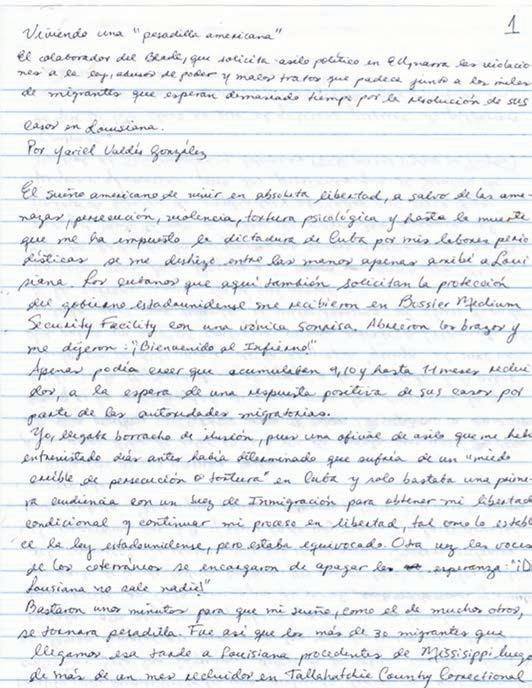 1
Viviendo una "pesadilla americana"
El colaborador del Blade, que solicita asilo político en EU, narra las violacio
nes a la ley, abusos de poder y malos tratos que padece junto a los miles
de migrantes que esperan demasiado tiempo por la resolución de sus
casos en Louisiana.
Por Yariel Valdés González
El sueño americano de vivir en absoluta libertad, a salvo de las ame-
nazas, persecución, violencia, tortura psicológica y hasta la muerte
que me ha impuesto la dictadura de Cuba por mis labores perio
dísticas se me deshizo entre las manos apenas arribé a Loui
siana. Los cubanos que aquí también solicitan la protección
del gobierno estadounidense me recibieron en Bossier Medium
Security Facility con una irónica sonrisa. Abrieron los brazos y
me dijeron: "¡Bienvenido al Infierno!"
Apenas podía creer que acumulaban 9, 10 y hasta 11 meses reclui
dos, a la espera de una respuesta positiva de sus casos por
parte de las autoridades migratorias.
Yo, llegaba borracho de ilusión, pues una oficial de asilo que me había
entrevistado días antes había determinado que sufría de un "miedo
creíble de persecución o tortura" en Cuba y solo bastaba una prime-
ra audiencia con un Juez de Inmigración para obtener mi libertad
condicional y continuar mi proceso en libertad, tal como lo estable
ce la ley estadounidense, pero estaba equivocado. Otra vez las voces
de los coterráneos se encargaron de apagar la esperanza: "¡De
Lousiana no sale nadie!"
Bastaron unos minutos para que mi sueño, como el de muchos otros,
se tornara pesadilla. Fue así que los más de 30 migrantes que
llegamos esa tarde a Louisiana procedentes de Mississippi luego
de más de un mes recluidos en Tallahatchie County Correctional